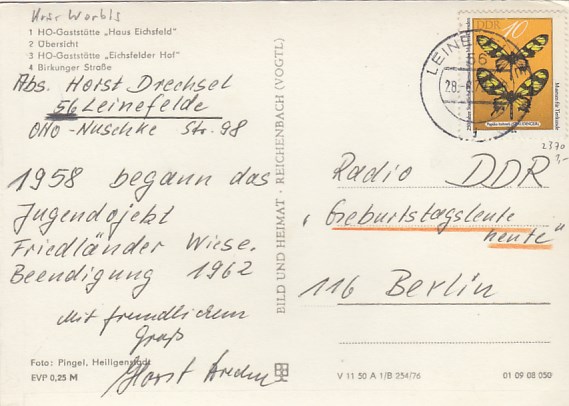 Kreis Worbis
1 HO-Gaststätte „Haus Eichsfeld"
2 Übersicht
3 HO-Gaststätte „Eichsfelder Hof"
4 Birkunger Straße
Abs. Horst Drechsel
56 Leinefelde
Otto-Nuschke Str. 98
1958 begann das
Jugendojekt
Friedländer Wiese.
Beendigung 1962
Mit freundlichem
Gruß
Horst
Foto: Pingel, Heiligenstadt
EVP 0,25 M
BILD UND HEIMAT · REICHENBACH (VOGTL)
DDR 10
Museum für Tierkunde
LEINE
56
28.-6.
2370
3,-
Radio DDR
„Geburtstagsleute
heute"
116 Berlin
V 11 50 A 1/B 254/76
01 09 08 050